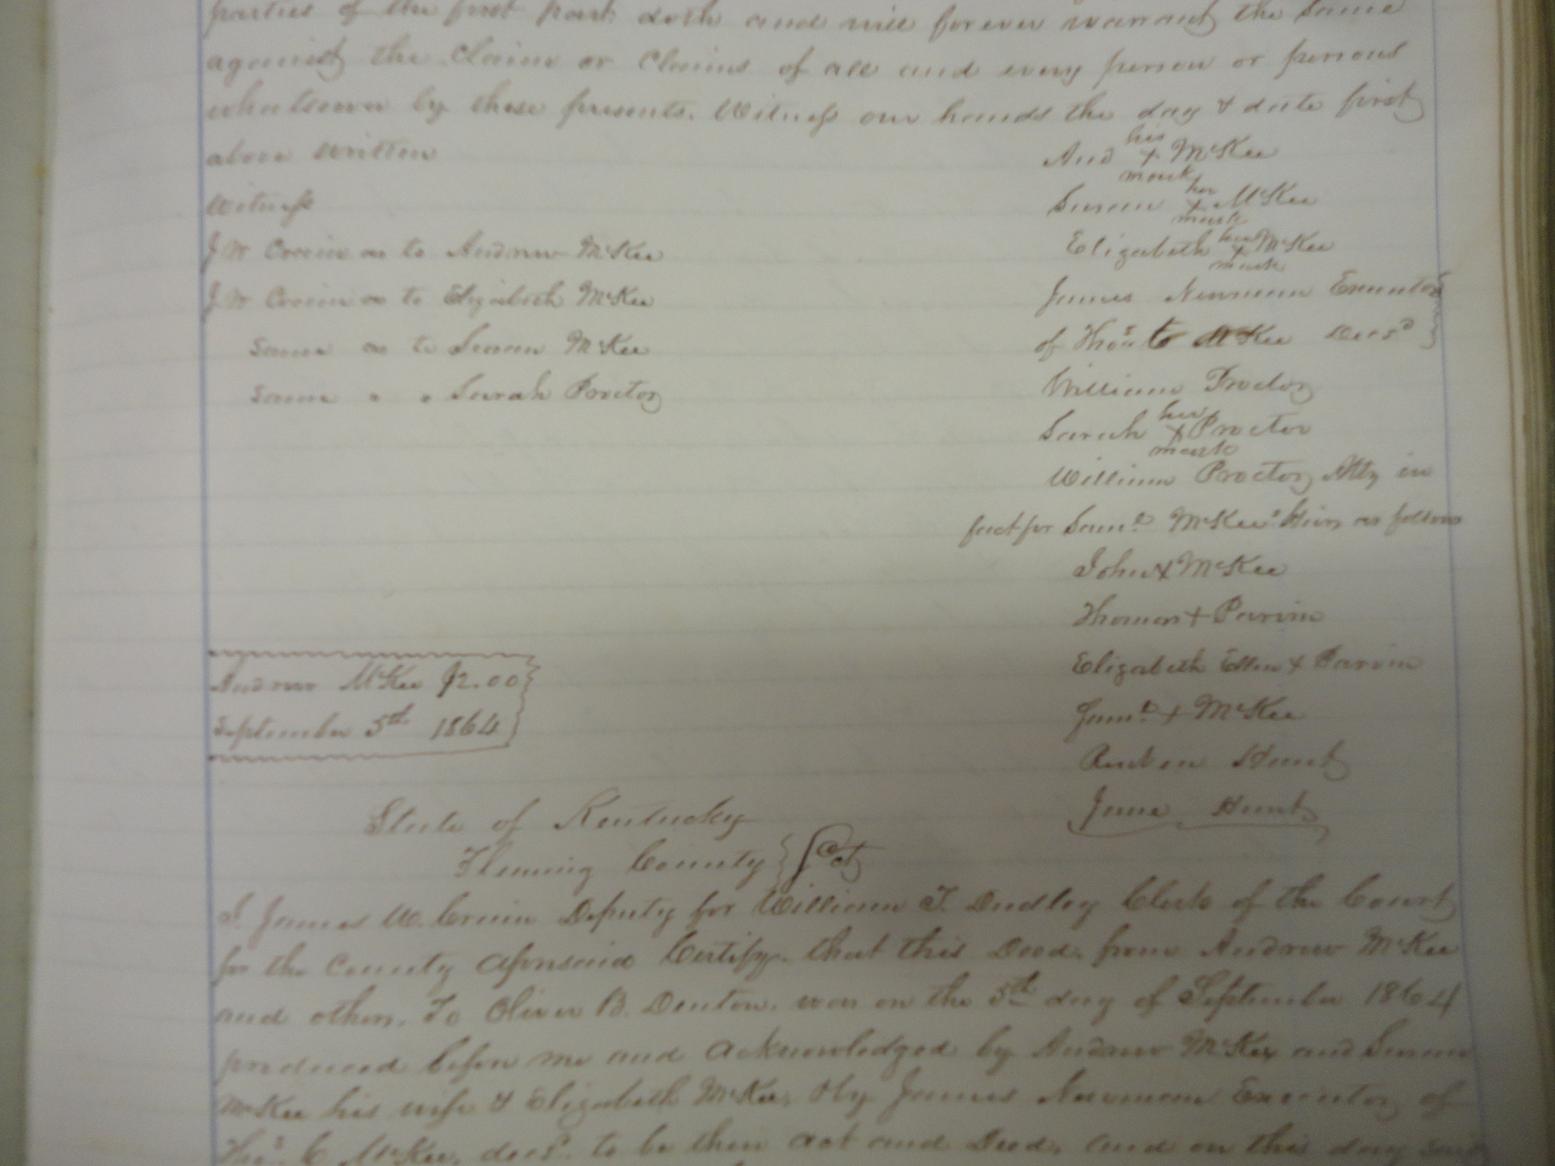 parties of the first part doth and will forever warrant the same
against the claim or claims of all and every person or persons
whatsoever by these presents. Witness our hands the day & date first
above written
his
And + McKee
mark
Witness
her
Susan + McKee
mark
J W Crain as to Andrew McKee
her
Elizabeth + McKee
mark
J W Crain as to Elizabeth McKee
James Newman Executor
same as to Susan McKee
of Thos McKee Decsd
same " " Sarah Proctor
William Proctor
her
Sarah + Proctor
mark
William Proctor Atty in
fact for Saml McKees Heirs as follows
John + McKee
Thomas + Parvin
Elizabeth Ellen + Parvin
Andrew McKee $2.00
September 5th 1864
Saml + McKee
Reuben Hunt
Jane Hunt
State of Kentucky
Fleming County } Sct
I James W. Crain Deputy for William T. Dudley Clerk of the Court
for the County aforesaid Certify that this Deed from Andrew McKee
and others. To Oliver B. Denton. was on the 5th day of September 1864
produced before me and acknowledged by Andrew McKee and Susan
McKee his wife & Elizabeth McKee, & by James Newman Executor of
Thos C McKee, decd. to be their act and Deed, and on this day said